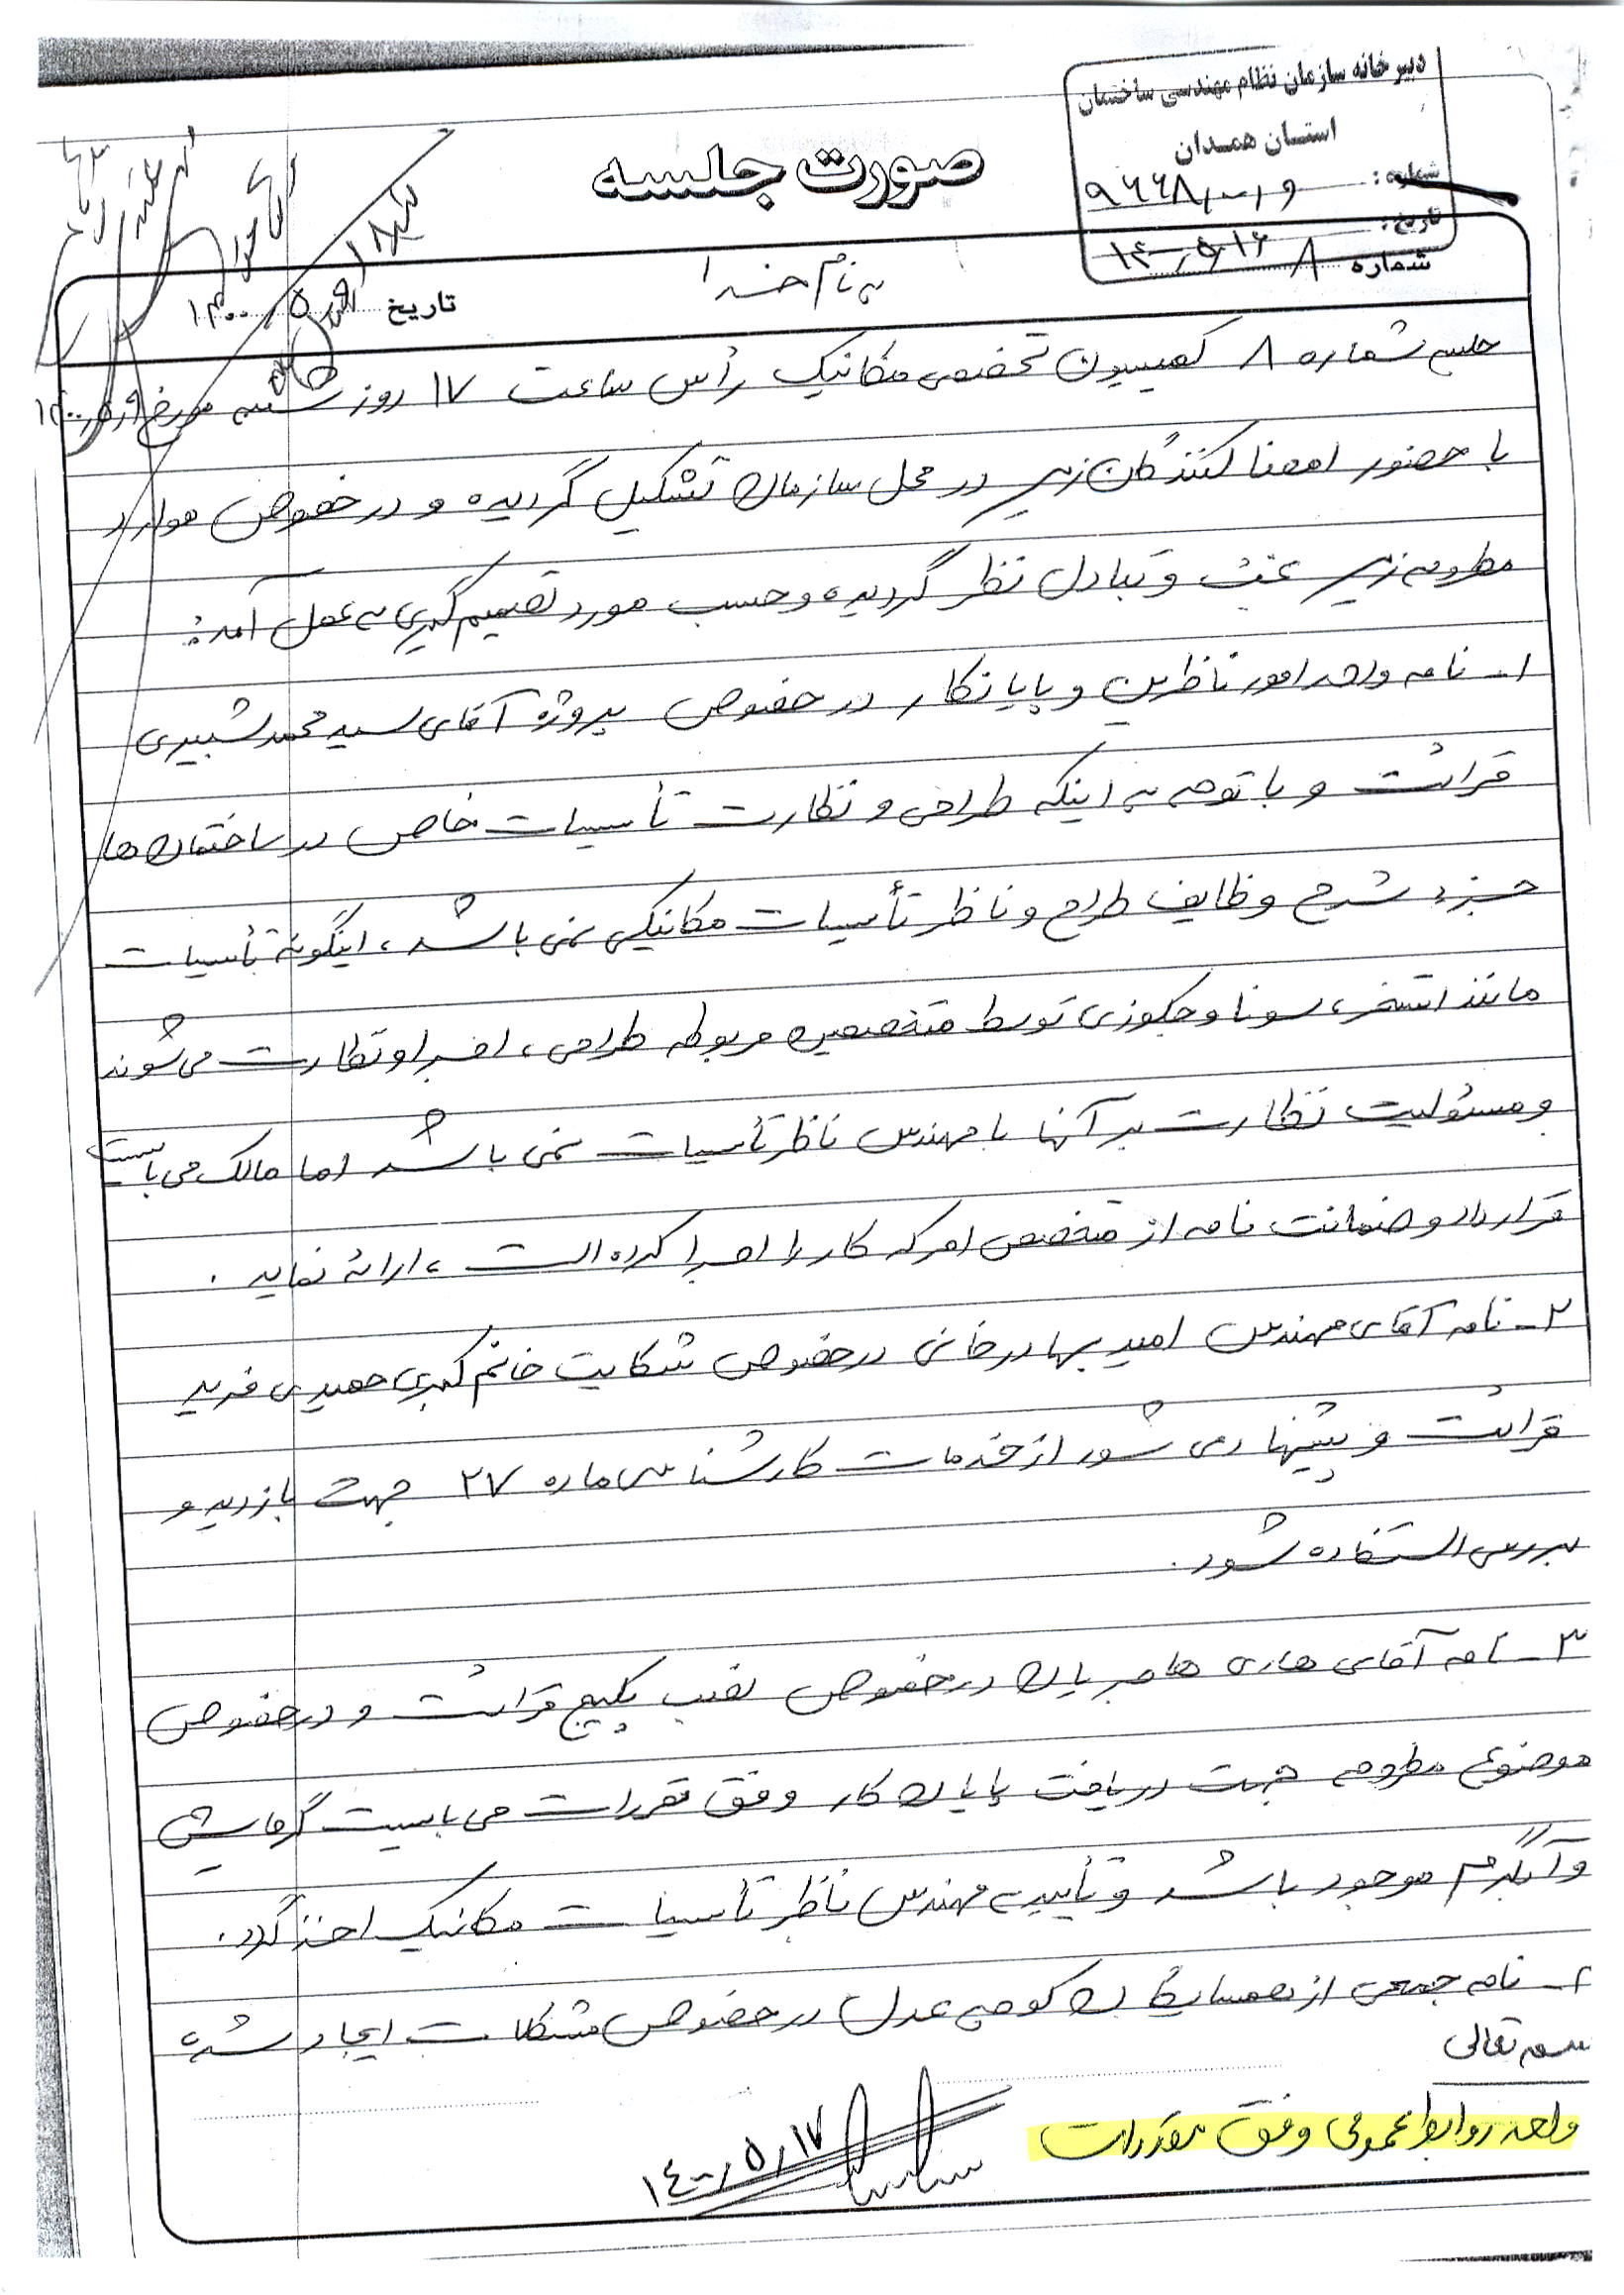 دبیرخانه سازمان نظام مهندسی ساختمان
استان همدان
شماره: ۹۶۶۸/۰۰/و
تاریخ: ۱۴۰۰/۵/۱۶
صورت جلسه
شماره ۸
به نام خدا
تاریخ ۱۴۰۰/۵/۹
جلسه شماره ۸ کمیسیون تخصصی مکانیک رأس ساعت ۱۷ روز شنبه مورخ ۱۴۰۰/۵/۹
با حضور امضا کنندگان زیر در محل سازمان تشکیل گردیده و در خصوص موارد
مطروحه زیر بحث و تبادل نظر گردیده و حسب مورد تصمیم گیری به عمل آمد:
۱- نامه واحد امور ناظرین و پایانکار در خصوص پروژه آقای سید محمد شبیری
قرائت و با توجه به اینکه طراحی و نظارت تأسیسات خاص در ساختمان ها
جزء شرح وظایف طراح و ناظر تأسیسات مکانیکی نمی باشد، اینگونه تأسیسات
مانند استخر، سونا و جکوزی توسط متخصصین مربوطه طراحی، اجرا و نظارت می شوند
و مسئولیت نظارت بر آنها با مهندس ناظر تأسیسات نمی باشد اما مالک می بایست
قرارداد و ضمانت نامه از متخصص امر که کار را اجرا کرده است، ارائه نماید.
۲- نامه آقای مهندس امید بهادرخانی در خصوص شکایت خانم کبری حمیدی فرید
قرائت و پیشنهاد می شود از خدمات کارشناسی ماده ۲۷ جهت بازدید و
بررسی استفاده شود.
۳- نامه آقای هادی هامریان در خصوص نصب پکیج قرائت و در خصوص
موضوع مطروحه جهت دریافت پایان کار وفق مقررات می بایست گرمایش
و آبگرم موجود باشد و تأییدیه مهندس ناظر تأسیسات مکانیک اخذ گردد.
۴- نامه جمعی از همسایگان کوچه عدل در خصوص مشکلات ایجاد شده
بسمه تعالی
واحد روابط عمومی وفق مقررات
۱۴۰۰/۵/۱۷